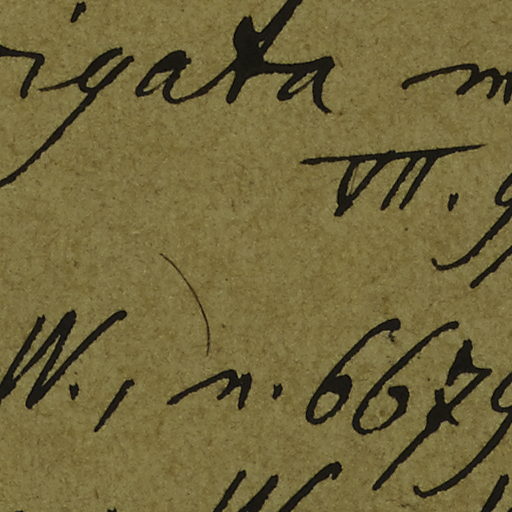 rigata m
VII. 9
W., n. 6679
W